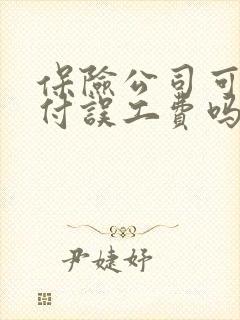 保險公司可
付誤工費嗎
尹婕妤